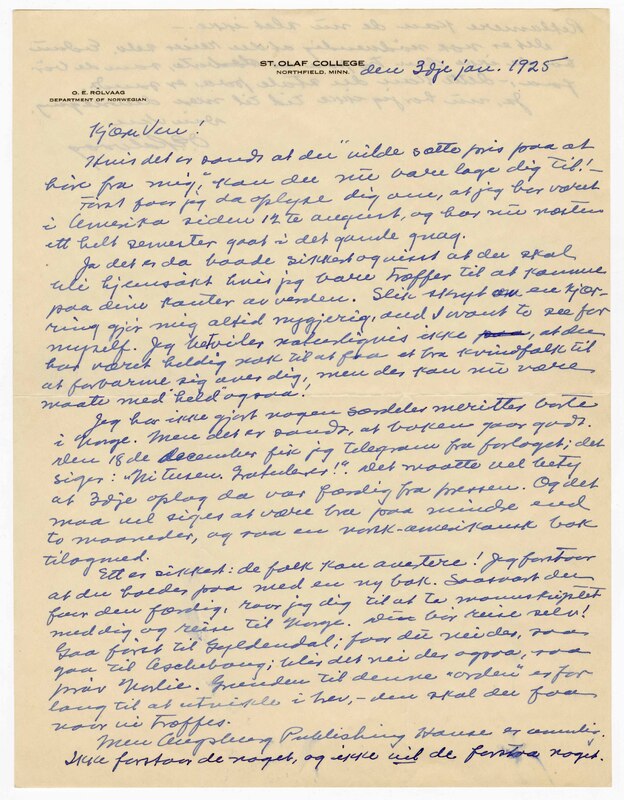 ST. OLAF COLLEGE
NORTHFIELD, MINN.
den 3dje jan. 1925
O. E. ROLVAAG
DEPARTMENT OF NORWEGIAN
Kjære Ven!
Hvis det er sandt at du "vilde sætte pris paa at
høre fra mig," kan du nu bare lage dig til!—
Først faar jeg da oplyse dig om, at jeg har været
i Amerika siden 12te august, og har nu næsten
ett helt semester gaat i det gamle gnag.
Ja det er da baade sikkert og visst at du skal
bli hjemsøkt hvis jeg bare træffer til at komme
paa dine kanter av verden. Slik skryt av en kjær-
ring gjør mig altid nygjerig, and I want to see for
myself. Jeg betviler naturligvis ikke at du
har været heldig nok til at faa et bra kvindfolk til
at forbarme sig over dig, men der kan nu være
maate med held ogsaa!
Jeg har ikke gjort nogen særdeles meritter borte
i Norge. Men det er sandt, at boken gaar godt.
Den 18de december fik jeg telegram fra forlaget; det
siger: "Ni tusen. Gratulerer!" Det maatte vel bety
at 3dje oplag da var færdig fra pressen. Og det
maa vel siges at være bra paa mindre end
to maaneder, og saa en norsk-amerikansk bok
tilogmed.
Ett er sikkert: de folk kan avertere! Jeg forstaar
at du holder paa med en ny bok. Saasnart du
faar den færdig, raar jeg dig til at ta manuskriptet
med dig og reise til Norge. Du bør reise selv!
Gaa først til Gyldendal; faar du nei der, saa
gaa til Aschehoug; blir det nei der ogsaa, saa
prøv Norlie. Grunden til denne "orden" er for
lang til at utvikle i brev,— den skal du faa
naar vi træffes.
Men Augsburg Publishing House er umulig.
Ikke forstaar de noget, og ikke vil de forstaa noget.